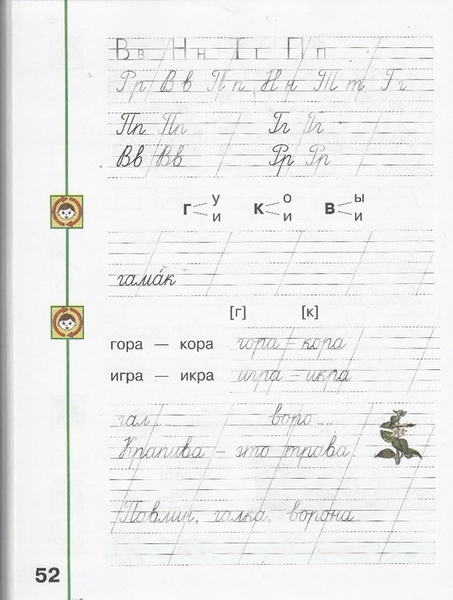 Вв Нн Гг Пп
Рр Вв Пп Нн Тт Гг
Пп Пп Гг Гг
Вв Вв Рр Рр
г у и к о и в ы и
гама́к
[г] [к]
гора — кора гора – кора
игра — икра игра – икра
гал... воро....
Крапива – это трава.
Павлин, галка, ворона.
52